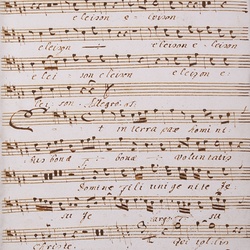 eleison e - leison.
eleison eleison elei-
e lei son eleison eleison e-
lei son. Allegro.
Et in terra pax homini
bus bonæ bonæ voluntatis
Domine fili uni ge nite Je
su Je su Largo
Christe. Qui tollis